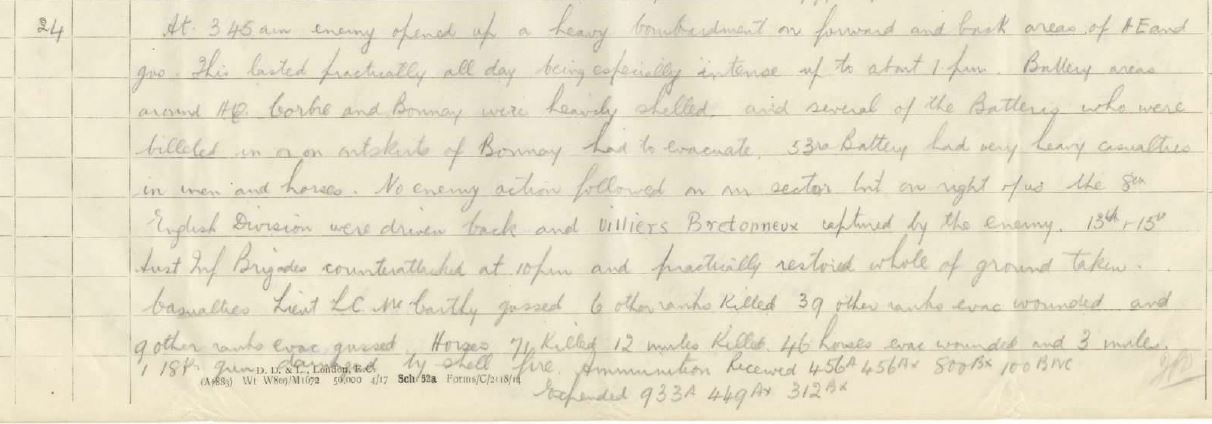 24 At 3 45 am enemy opened up a heavy bombardment on forward and back areas of HE and
gas. This lasted practically all day being especially intense up to about 1 pm. Battery areas
around HQ Corbie and Bonnay were heavily shelled, and several of the Batteries who were
billeted in or on outskirts of Bonnay had to evacuate. 53rd Battery had very heavy casualties
in men and horses. No enemy action followed on our sector but on right of us the 8th
English Division were driven back and Villiers Bretonneux captured by the enemy. 13th + 15th
Aust Inf Brigades counterattacked at 10pm and practically restored whole of ground taken.
Casualties Lieut L.C. McCarthy gassed 6 other ranks Killed 39 other ranks evac wounded and
9 other ranks evac gassed. Horses 71 Killed 12 mules Killed 46 horses evac wounded and 3 mules.
1 18Pr gun damaged by shell fire. Ammunition Received 456A 456Ax 800Bx 100BNC
D. D. & L., London, E.C.
(A7883) Wt W809/M1672 50,000 4/17 Sch/52a Forms/C/2118/14
Expended 933A 449Ax 312Bx